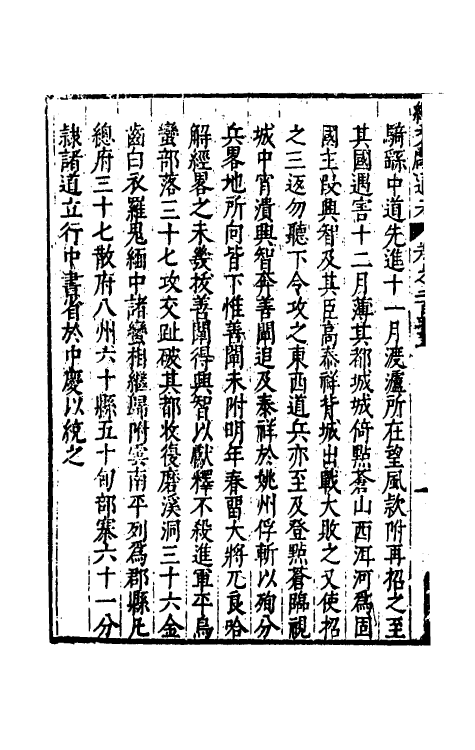 騎繇中道先進十一月渡瀘所在望風欵附再招之至
其國遇害十二月薄其都城城倚點蒼山西洱河爲固
國主段興智及其臣高泰祥背城出戰大敗之又使招
之三返勿聽下令攻之東西道兵亦至及登點蒼臨視
城中宵潰興智奔善闡追及泰祥於姚州俘斬以殉分
兵畧地所向皆下惟善闡未附明年春留大將兀良哈
解經畧之未幾拔善闡得興智以獻釋不殺進軍平烏
蠻部落三十七攻交趾破其都收復磨溪洞三十六金
齒白衣羅鬼緬中諸蠻相繼歸附雲南平列爲郡縣凡
總府三十七散府八州六十縣五十甸部寨六十一分
隷諸道立行中書省於中慶以統之